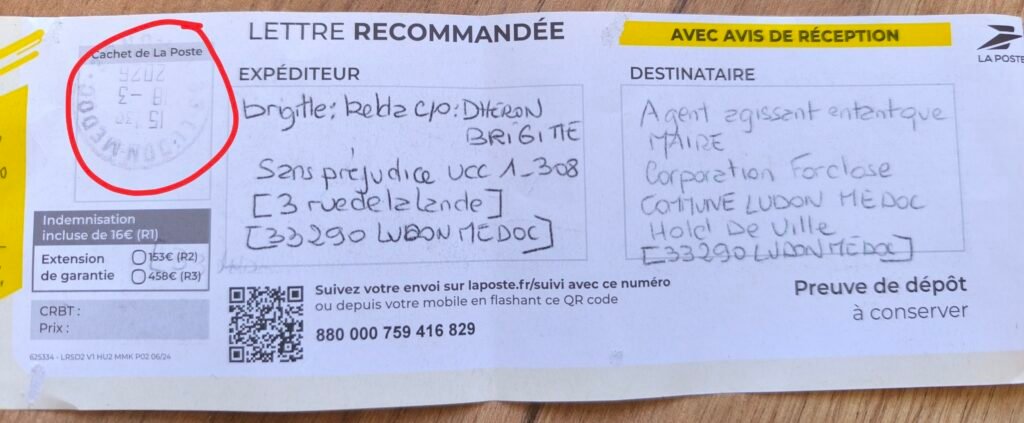 LETTRE RECOMMANDÉE
AVEC AVIS DE RÉCEPTION
LA POSTE
Cachet de La Poste
15
18 - 3
2026
LUDON-MEDOC
EXPÉDITEUR
brigitte; kelda c/o: DHÉRON
BRIGITTE
Sans préjudice UCC 1-308
[3 rue de la lande]
[33290 LUDON MÉDOC]
DESTINATAIRE
Agent agissant entantque
MAIRE
Corporation Forclose
COMMUNE LUDON MÉDOC
Hotel De Ville
[33290 LUDON MÉDOC]
Indemnisation
incluse de 16€ (R1)
Extension
de garantie
153€ (R2)
458€ (R3)
CRBT :
Prix :
625334 - LRSD2 V1 HU2 MMK P02 06/24
Suivez votre envoi sur laposte.fr/suivi avec ce numéro
ou depuis votre mobile en flashant ce QR code
880 000 759 416 829
Preuve de dépôt
à conserver